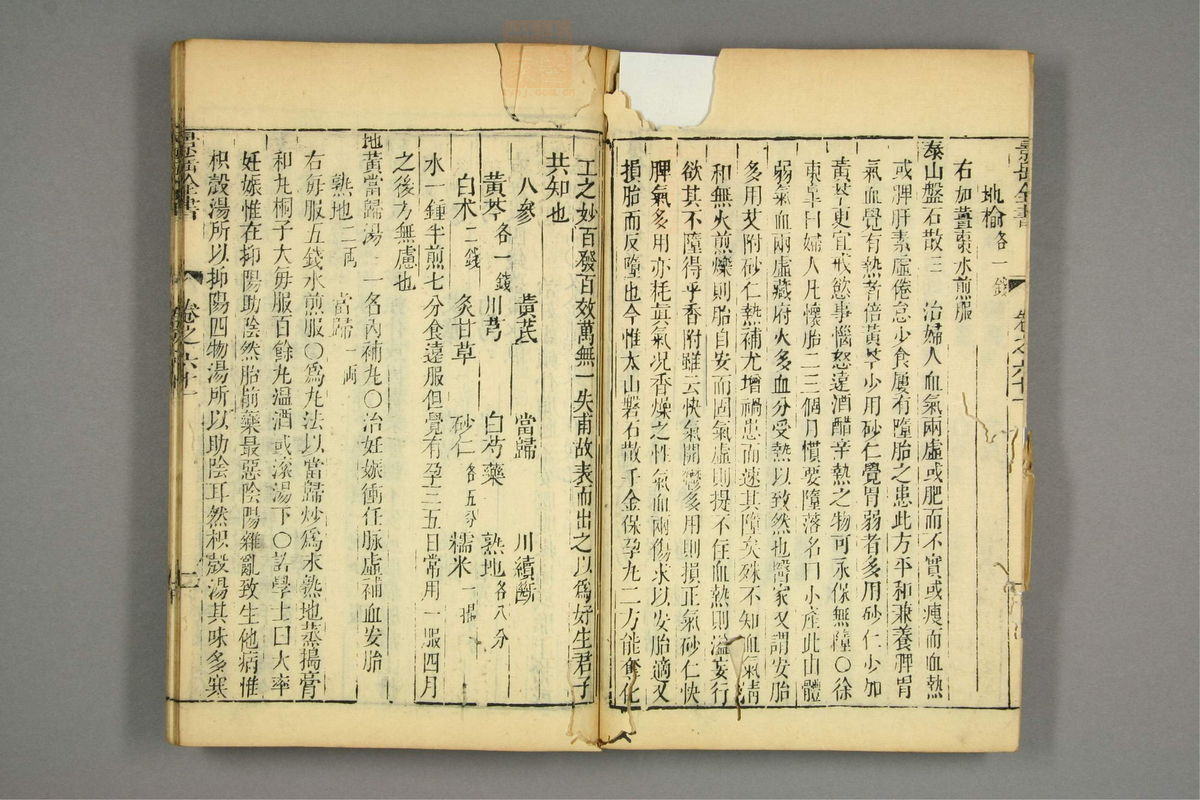 地榆各一錢
右加薑棗水煎服
泰山盤石散三　治婦人血氣兩虛或肥而不實或瘦而血熱
或脾肝素虛倦怠少食屢有墮胎之患此方平和兼養脾胃
氣血覺有熱者倍黃芩少用砂仁覺胃弱者多用砂仁少加
黃芩更宜戒慾事惱怒遠酒醋辛熱之物可永保無墮〇徐
東皐曰婦人凡懷胎二三個月慣要墮落名曰小產此由體
弱氣血兩虛藏府火多血分受熱以致然也醫家又謂安胎
多用艾附砂仁熱補尤增禍患而速其墮矣殊不知血氣淸
和無火煎爍則胎自安而固氣虛則提不住血熱則溢妄行
欲其不墮得乎香附雖云快氣開鬱多用則損正氣砂仁快
脾氣多用亦耗眞氣况香燥之性氣血兩傷求以安胎適又
損胎而反墮也今惟太山磐石散千金保孕丸二方能奪化
工之妙百發百效萬無一失甫故表而出之以爲好生君子
共知也
人參　黃芪　當歸　川續斷
黃芩各一錢　川芎　白芍藥　熟地各八分
白术二錢　炙甘草　砂仁各五分　糯米一撮
水一鍾半煎七分食遠服但覺有孕三五日常用一服四月
之後方無慮也
地黃當歸湯　一名內補丸〇治妊娠衝任脉虛補血安胎
熟地二兩　當歸一兩
右毎服五錢水煎服〇爲丸法以當歸炒爲末熟地蒸搗膏
和丸桐子大毎服百餘丸温酒或滚湯下〇許學士曰大率
妊娠惟在抑陽助陰然胎前藥最惡陰陽雜亂致生他病惟
枳殼湯所以抑陽四物湯所以助陰耳然枳殼湯其味多寒
景岳全書
卷之六十一